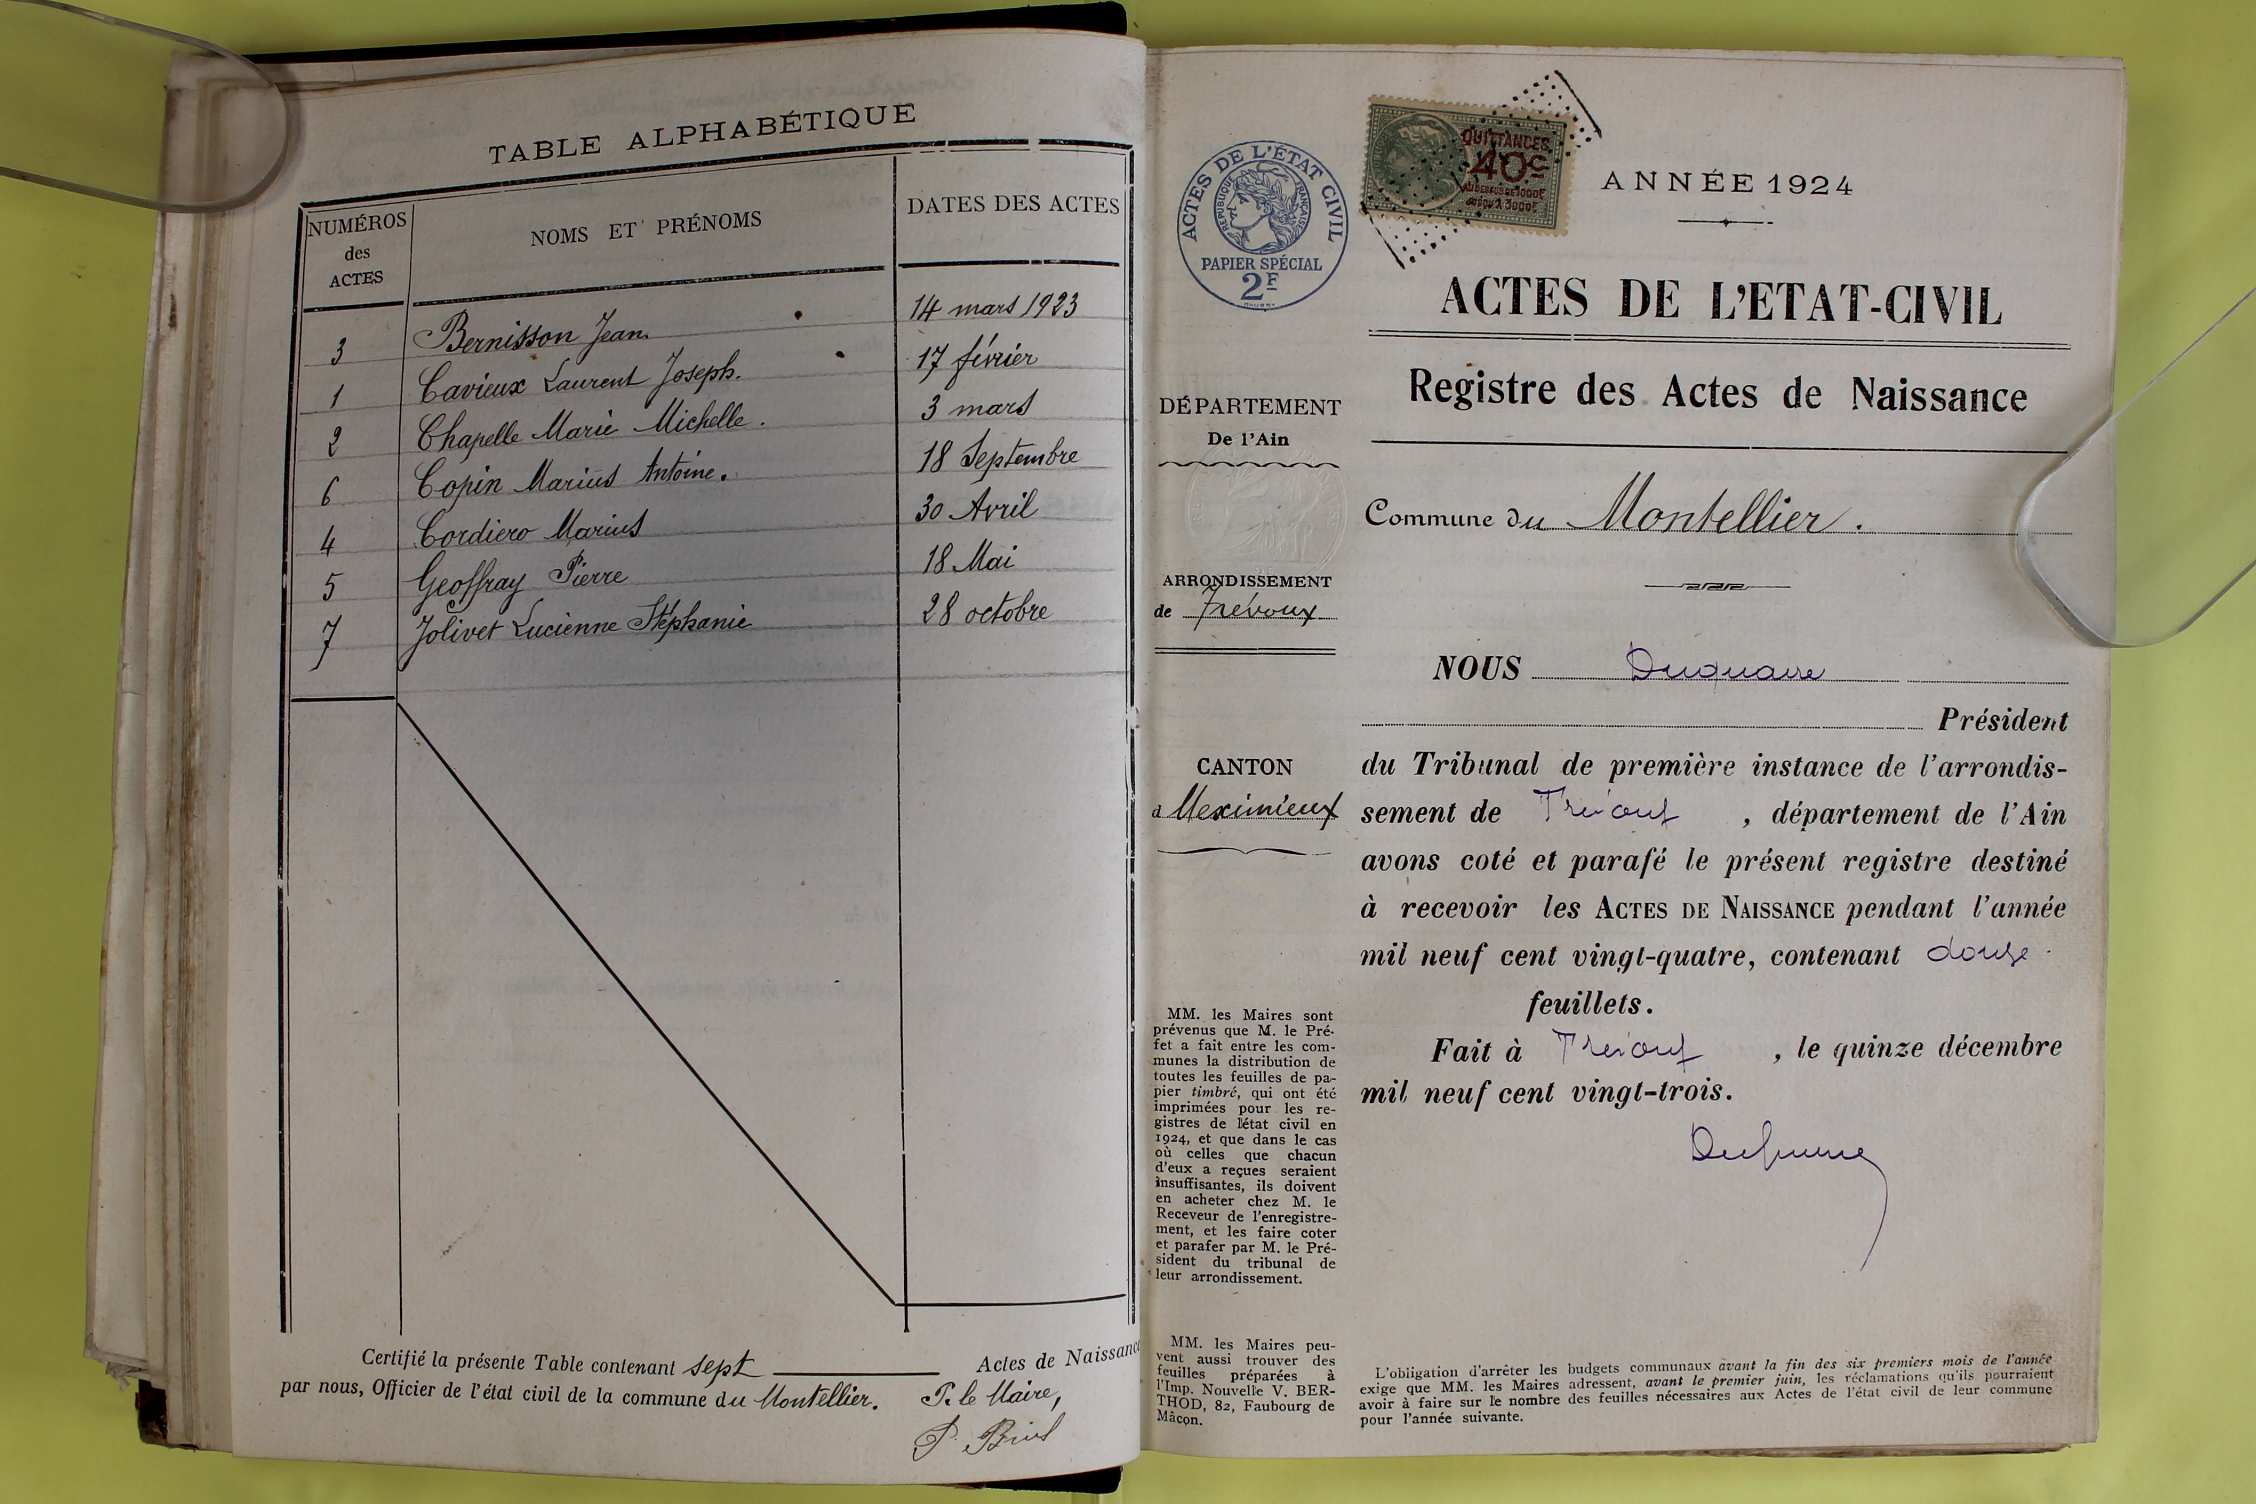 TABLE ALPHABÉTIQUE
NUMÉROS
des
ACTES
NOMS ET PRÉNOMS
DATES DES ACTES
3 Bernisson Jean. 14 mars 1923
1 Cavieux Laurent Joseph. 17 février
2 Chapelle Marie Michelle. 3 mars
6 Copin Marius Antoine. 18 Septembre
4 Cordiero Marius 30 Avril
5 Geoffray Pierre 18 Mai
7 Jolivet Lucienne Stéphanie 28 octobre
Certifié la présente Table contenant sept Actes de Naissance
par nous, Officier de l'état civil de la commune du Montellier.
P. le Maire,
ACTES DE L'ÉTAT CIVIL
RÉPUBLIQUE FRANÇAISE
PAPIER SPÉCIAL
2F
QUITTANCES
40c
AU DESSUS DE 1000F
JUSQU'À 3000F
ANNÉE 1924
ACTES DE L'ETAT-CIVIL
Registre des Actes de Naissance
DÉPARTEMENT
De l'Ain
Commune du Montellier.
ARRONDISSEMENT
de Trévoux
CANTON
d Meximieux
NOUS Duquaire
Président
du Tribunal de première instance de l'arrondis-
sement de Trévoux, département de l'Ain
avons coté et parafé le présent registre destiné
à recevoir les ACTES DE NAISSANCE pendant l'année
mil neuf cent vingt-quatre, contenant douze
feuillets.
Fait à Trévoux, le quinze décembre
mil neuf cent vingt-trois.
Duquaire
MM. les Maires sont
prévenus que M. le Pré-
fet a fait entre les com-
munes la distribution de
toutes les feuilles de pa-
pier timbré, qui ont été
imprimées pour les re-
gistres de l'état civil en
1924, et que dans le cas
où celles que chacun
d'eux a reçues seraient
insuffisantes, ils doivent
en acheter chez M. le
Receveur de l'enregistre-
ment, et les faire coter
et parafer par M. le Pré-
sident du tribunal de
leur arrondissement.
MM. les Maires peu-
vent aussi trouver des
feuilles préparées à
l'Imp. Nouvelle V. BER-
THOD, 82, Faubourg de
Mâcon.
L'obligation d'arrêter les budgets communaux avant la fin des six premiers mois de l'année
exige que MM. les Maires adressent, avant le premier juin, les réclamations qu'ils pourraient
avoir à faire sur le nombre des feuilles nécessaires aux Actes de l'état civil de leur commune
pour l'année suivante.